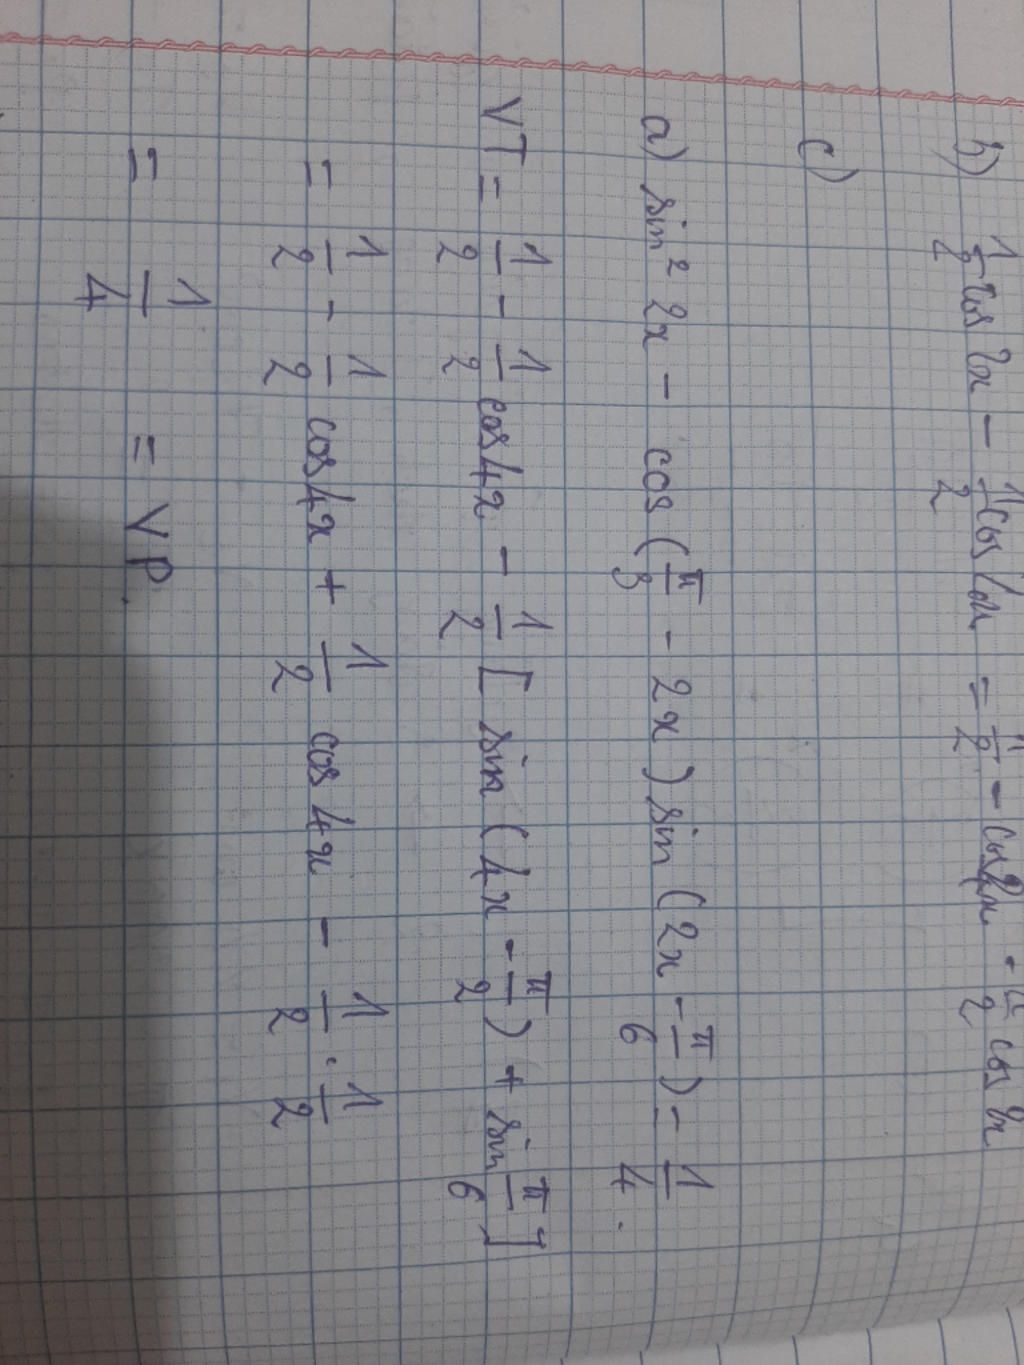 b) 1/2 cos 2x - 1/2 cos = 1/2 - cos
c)
a) sin² 2x - cos (π/3 - 2x) sin (2x - π/6) = 1/4.
VT = 1/2 - 1/2 cos4x - 1/2 [ sin (4x - π/2) + sin π/6 ]
= 1/2 - 1/2 cos4x + 1/2 cos 4x - 1/2 . 1/2
= 1/4 = VP